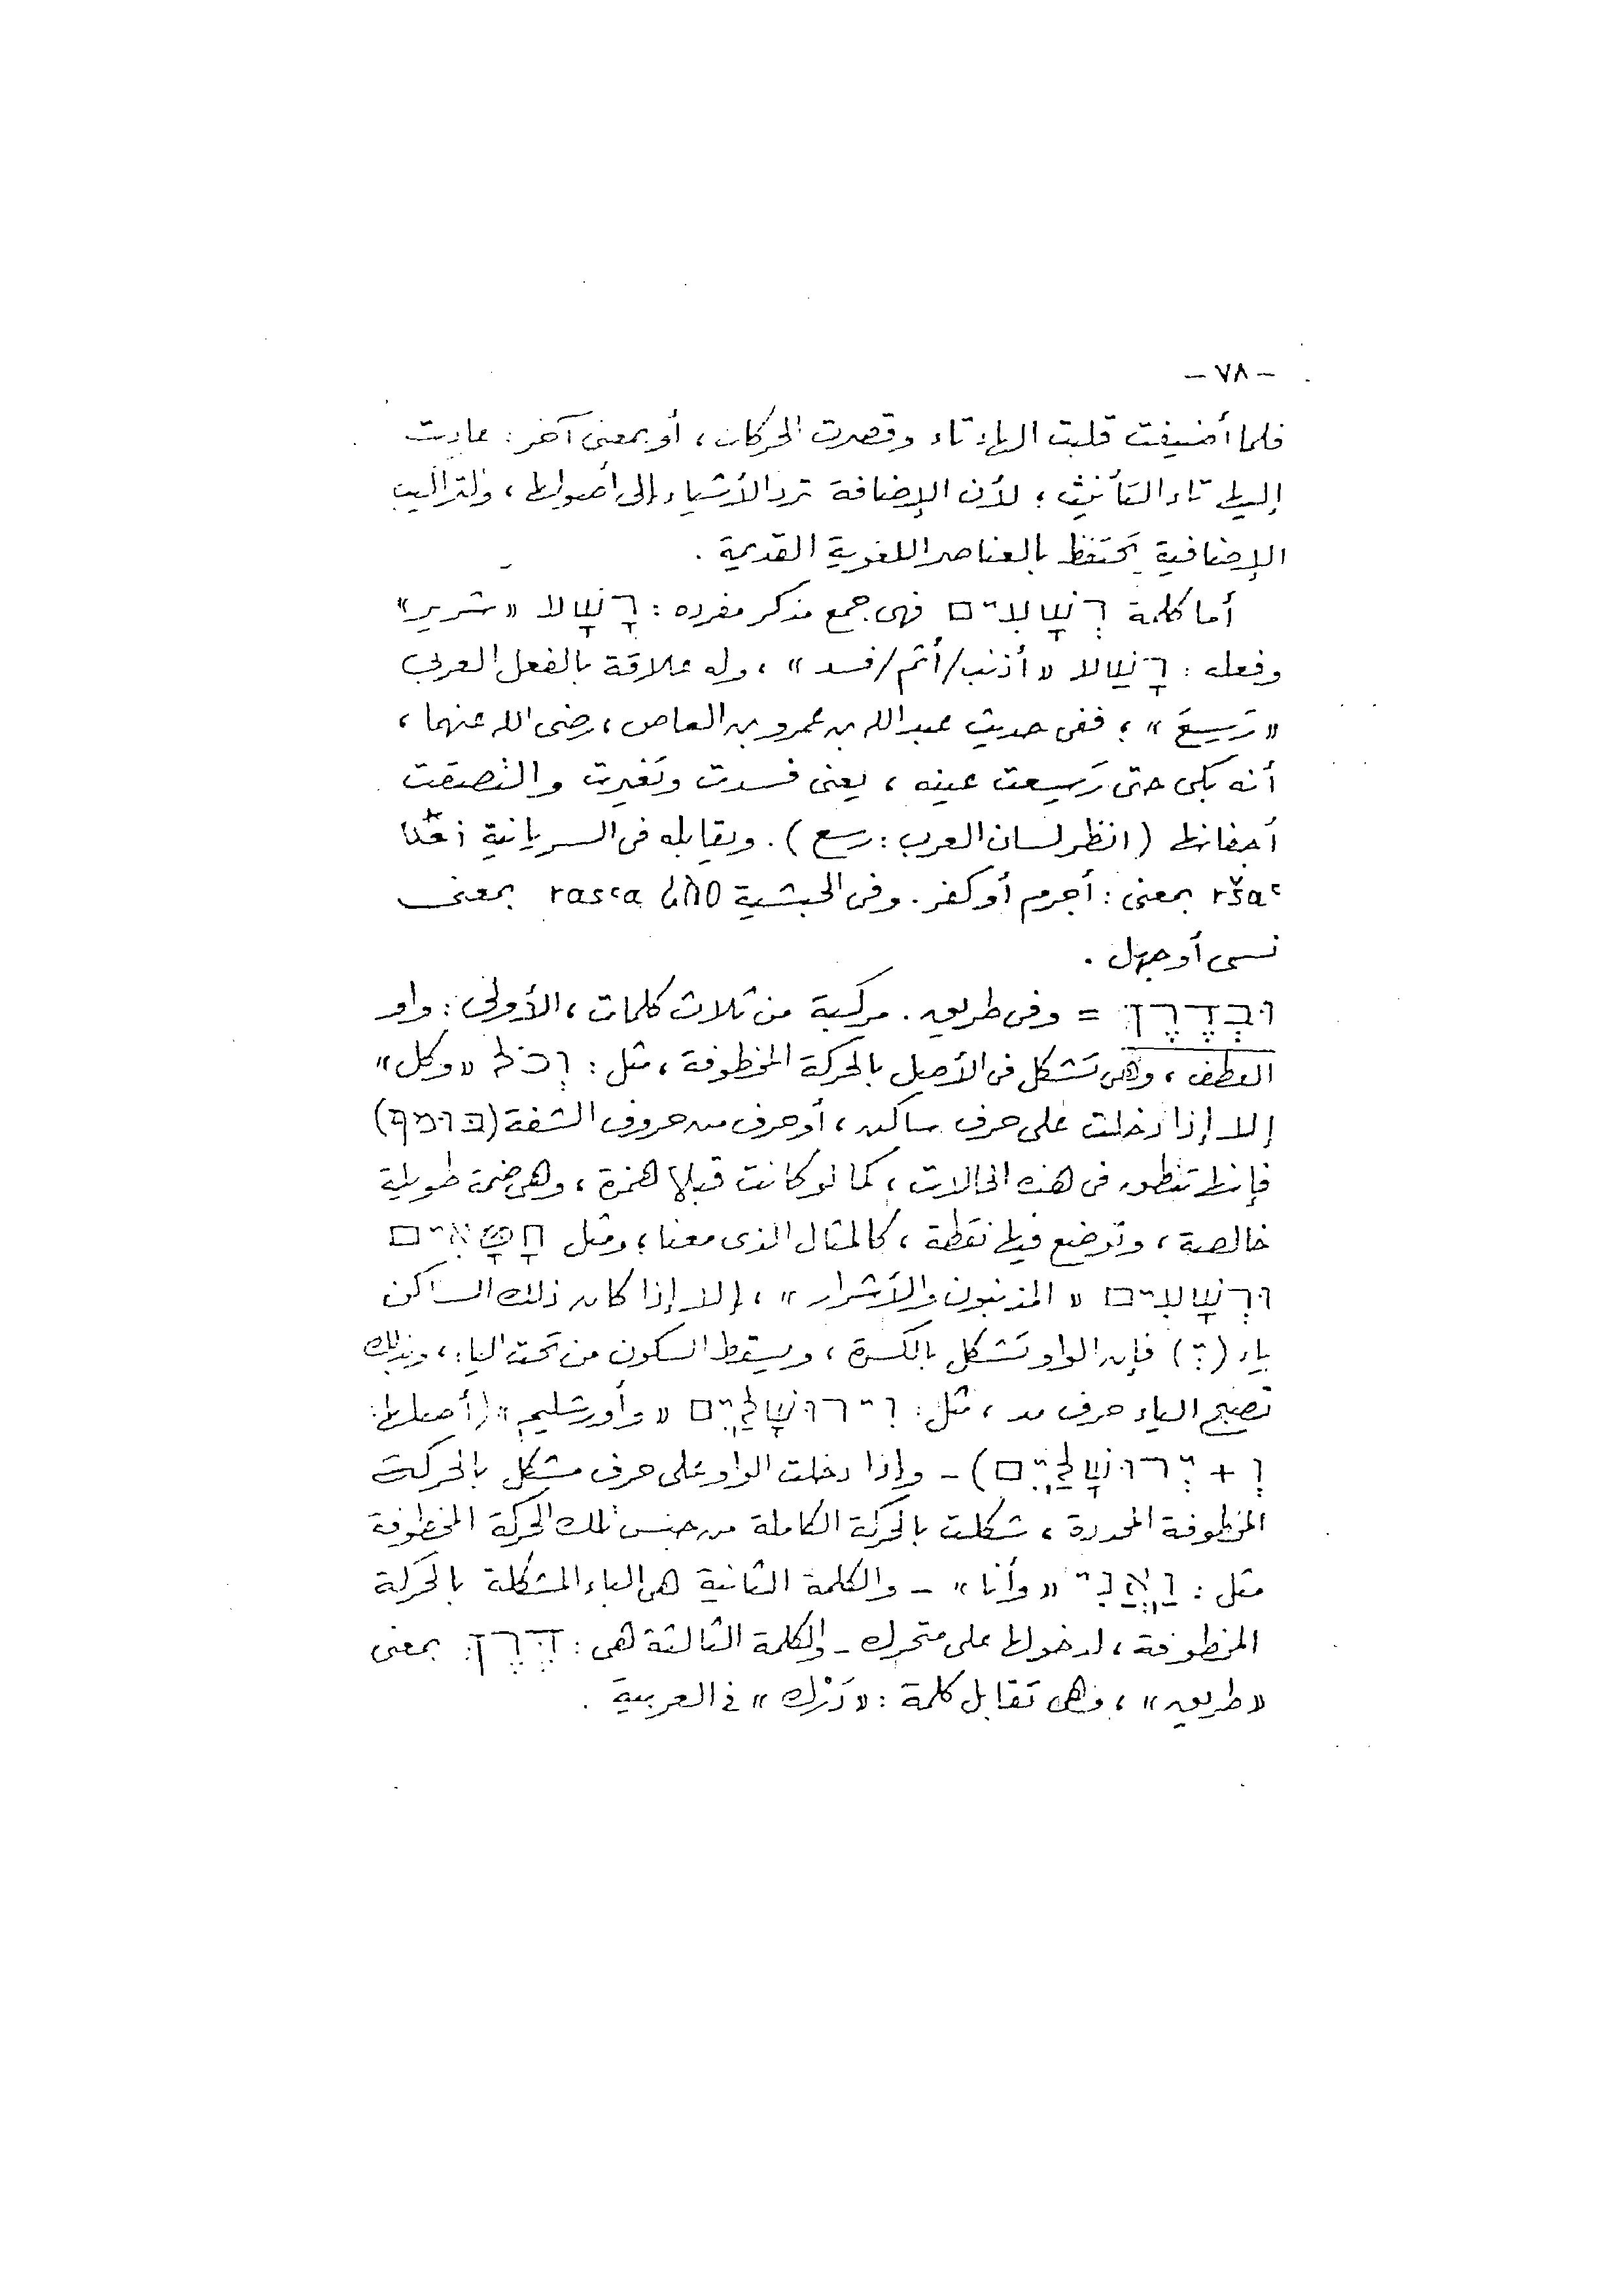 - ٧٨ -
فلما أضيفت قلبت الهاء تاء وقصرت الحركات، أو بمعنى آخر: عادت
إليها تاء التأنيث؛ لأن الإضافة ترد الأشياء إلى أصولها، والتراكيب
الإضافية تحتفظ بالعناصر اللغوية القديمة.
أما كلمة רְשָׁעִים فهى جمع مذكر مفرده: רָשָׁע «شرير»
وفعله: רָשַׁע «أذنب/أثم/فسد»، وله علاقة بالفعل العربى
«رَسِعَ»؛ ففى حديث عبد الله بن عمرو بن العاص، رضى الله عنهما،
أنه بكى حتى رَسِعت عينه، يعنى فسدت وتغيرت والتصقت
أجفانها (انظر لسان العرب: رسع). ويقابله فى السريانية
ršaʿ بمعنى: أجرم أو كفر. وفى الحبشية ረስዐ rasʿa بمعنى
نسى أو جهل.
וּבְדֶרֶךְ = وفى طريق. مركبة من ثلاث كلمات، الأولى: واو
العطف، وهى تشكل فى الأصل بالحركة المخطوفة، مثل: וְכֹל «وكل»
إلا إذا دخلت على حرف ساكن، أو حرف من حروف الشفة (בומף)
فإنها تنطق فى هذه الحالات، كما لو كانت قبلها همزة، وهى ضمة طويلة
خالصة، وتوضع فيها نقطة، كالمثال الذى معنا؛ ومثل חַטָּאִים
וּרְשָׁעִים «المذنبون والأشرار»، إلا إذا كان ذلك الساكن
ياء (יְ) فإن الواو تشكل بالكسرة، ويسقط السكون من تحت الياء، وبذلك
تصبح الياء حرف مد، مثل: וִירוּשָׁלַיִם «وأورشليم» (أصلها:
וְ + יְרוּשָׁלַיִם) - وإذا دخلت الواو على حرف مشكل بالحركة
المخطوفة المحددة، شكلت بالحركة الكاملة من جنس تلك الحركة المخطوفة
مثل: וַאֲנִי «وأنا» - والكلمة الثانية هى الباء المشكلة بالحركة
المخطوفة، لدخولها على متحرك - والكلمة الثالثة هى: דֶּרֶךְ بمعنى
«طريق»، وهى تقابل كلمة: «دَرْك» فى العربية.